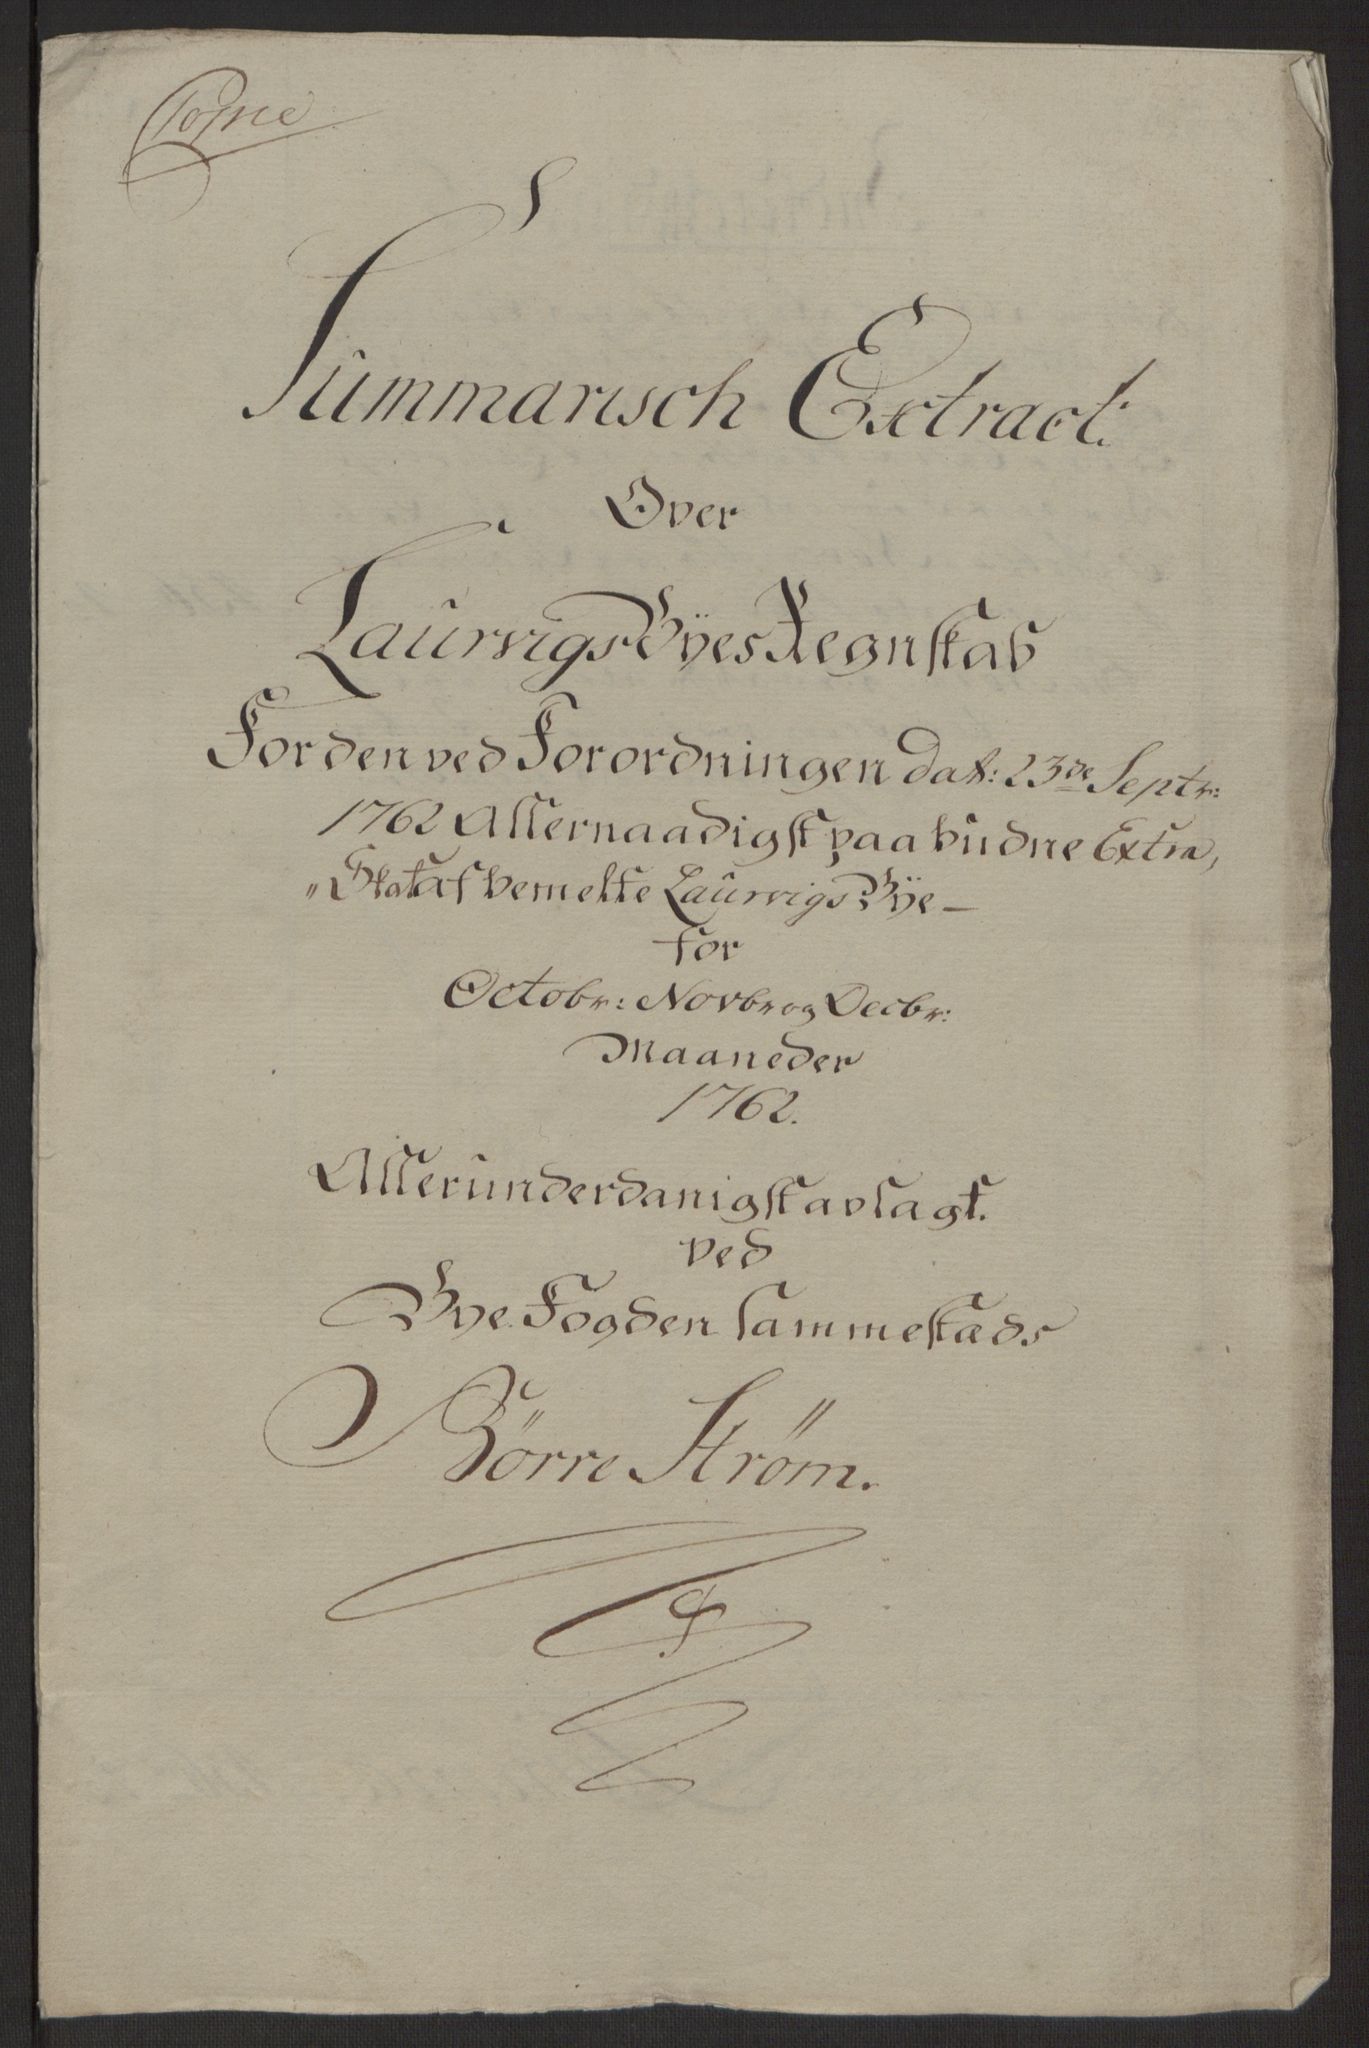 Summarisch Extract.
Over
Laurvigs Byes Regnskab
For den ved Forordningen dat: 23de Septr:
1762 Allernaadigst paabudne Extra,
„Skat af bemelte Laurvigs Bÿe —
for
Octobr: Novbr og Decbr:
Maaneder
1762.
Allerunderdanigst avlagt.
ved
Bye Fogden sammestæds
Börre Ström.